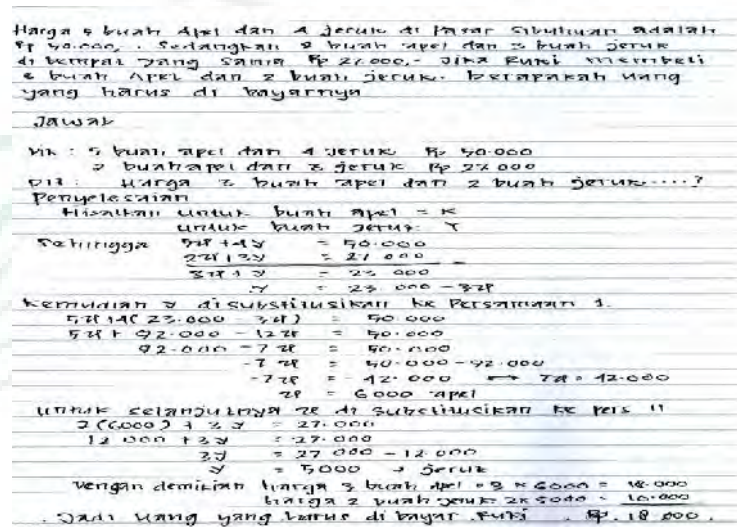 Harga 5 buah Apel dan 4 Jeruk di Pasar Sibuhuan adalah
Rp 50.000,. Sedangkan 2 buah apel dan 3 buah jeruk
di tempat yang sama Rp 27.000,- Jika Rufi membeli
buah Apel dan 2 buah jeruk. berapakah uang
yang harus di bayarnya
Jawab
Dik : 5 buah apel dan 4 Jeruk Rp 50.000
2 buah apel dan 3 jeruk Rp 27 000
Dit : Harga 3 buah apel dan 2 buah jeruk....?
Penyelesaian
Misalkan untuk buah apel = x
untuk buah Jeruk Y
Sehingga 5x + 4y = 50.000
2x + 3y = 27 000
3x + y = 23 000
y = 23.000 - 3x
Kemudian y disubstitusikan ke Persamaan 1.
5x + 4( 23.000 - 3x) = 50 000
5x + 92.000 - 12x = 50.000
92.000 - 7x = 50.000
-7x = 50.000 - 92.000
-7x = - 42.000 → 7x = 42.000
x = 6000 apel
untuk selanjutnya x di substitusikan ke pers 11
2(6000) + 3y = 27.000
12 000 + 3y = 27.000
3y = 27 000 - 12.000
y = 5000 → jeruk
Dengan demikian harga 3 buah Apel = 3 x 6000 = 18.000
harga 2 buah jeruk 2x 5000 = 10.000
Jadi uang yang harus di bayar Rufi Rp. 18 000.